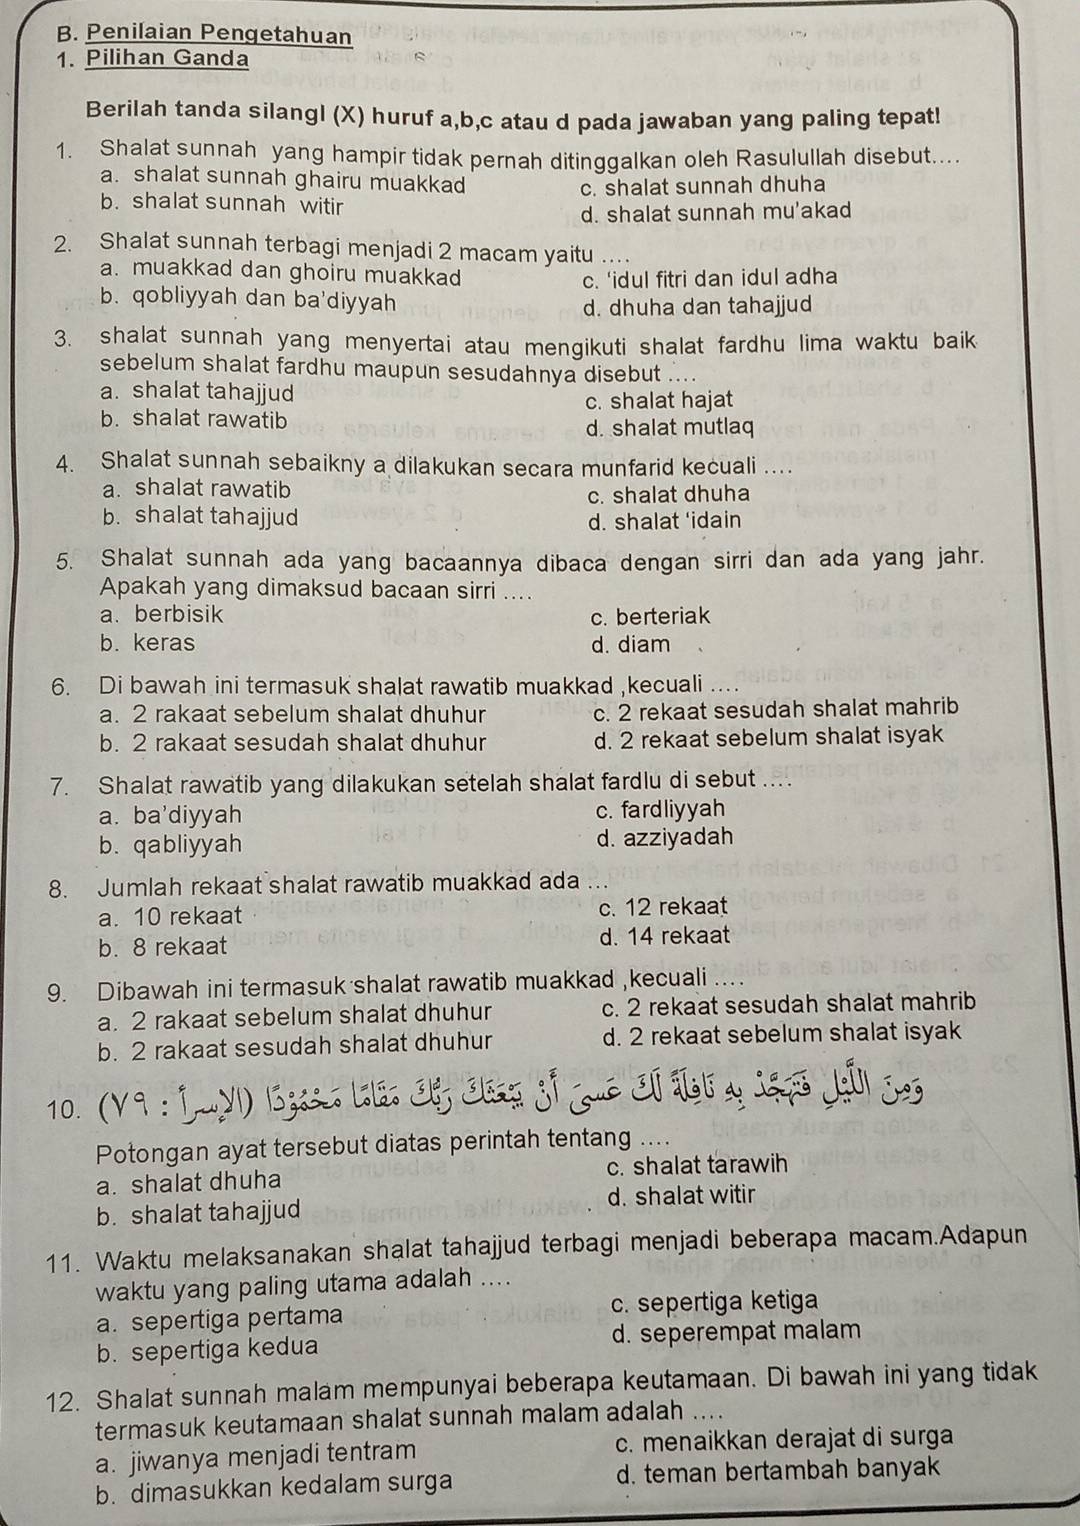 B. Penilaian Pengetahuan
1. Pilihan Ganda
Berilah tanda silangl (X) huruf a,b,c atau d pada jawaban yang paling tepat!
1. Shalat sunnah yang hampir tidak pernah ditinggalkan oleh Rasulullah disebut....
a. shalat sunnah ghairu muakkad
c. shalat sunnah dhuha
b. shalat sunnah witir
d. shalat sunnah mu'akad
2. Shalat sunnah terbagi menjadi 2 macam yaitu ....
a. muakkad dan ghoiru muakkad
c. 'idul fitri dan idul adha
b. qobliyyah dan ba'diyyah
d. dhuha dan tahajjud
3. shalat sunnah yang menyertai atau mengikuti shalat fardhu lima waktu baik
sebelum shalat fardhu maupun sesudahnya disebut ....
a. shalat tahajjud
c. shalat hajat
b. shalat rawatib
d. shalat mutlaq
4. Shalat sunnah sebaikny a dilakukan secara munfarid kecuali ....
a. shalat rawatib
c. shalat dhuha
b. shalat tahajjud
d. shalat 'idain
5. Shalat sunnah ada yang bacaannya dibaca dengan sirri dan ada yang jahr.
Apakah yang dimaksud bacaan sirri ....
a. berbisik
c. berteriak
b. keras
d. diam
6. Di bawah ini termasuk shalat rawatib muakkad ,kecuali ....
a. 2 rakaat sebelum shalat dhuhur
c. 2 rekaat sesudah shalat mahrib
b. 2 rakaat sesudah shalat dhuhur
d. 2 rekaat sebelum shalat isyak
7. Shalat rawatib yang dilakukan setelah shalat fardlu di sebut ....
a. ba'diyyah
c. fardliyyah
b. qabliyyah
d. azziyadah
8. Jumlah rekaat shalat rawatib muakkad ada ...
a. 10 rekaat
c. 12 rekaat
b. 8 rekaat
d. 14 rekaat
9. Dibawah ini termasuk shalat rawatib muakkad ,kecuali ....
a. 2 rakaat sebelum shalat dhuhur
c. 2 rekaat sesudah shalat mahrib
b. 2 rakaat sesudah shalat dhuhur
d. 2 rekaat sebelum shalat isyak
10. وَمِنَ اللَّيْلِ فَتَهَجَّدْ بِهِ نَافِلَةً لَكَ عَسَى أَنْ يَبْعَثَكَ رَبُّكَ مَقَامًا مَحْمُوْدًا (الإسرأ : ٧٩)
Potongan ayat tersebut diatas perintah tentang ....
a. shalat dhuha
c. shalat tarawih
b. shalat tahajjud
d. shalat witir
11. Waktu melaksanakan shalat tahajjud terbagi menjadi beberapa macam.Adapun
waktu yang paling utama adalah ....
a. sepertiga pertama
c. sepertiga ketiga
b. sepertiga kedua
d. seperempat malam
12. Shalat sunnah malam mempunyai beberapa keutamaan. Di bawah ini yang tidak
termasuk keutamaan shalat sunnah malam adalah ....
a. jiwanya menjadi tentram
c. menaikkan derajat di surga
b. dimasukkan kedalam surga
d. teman bertambah banyak